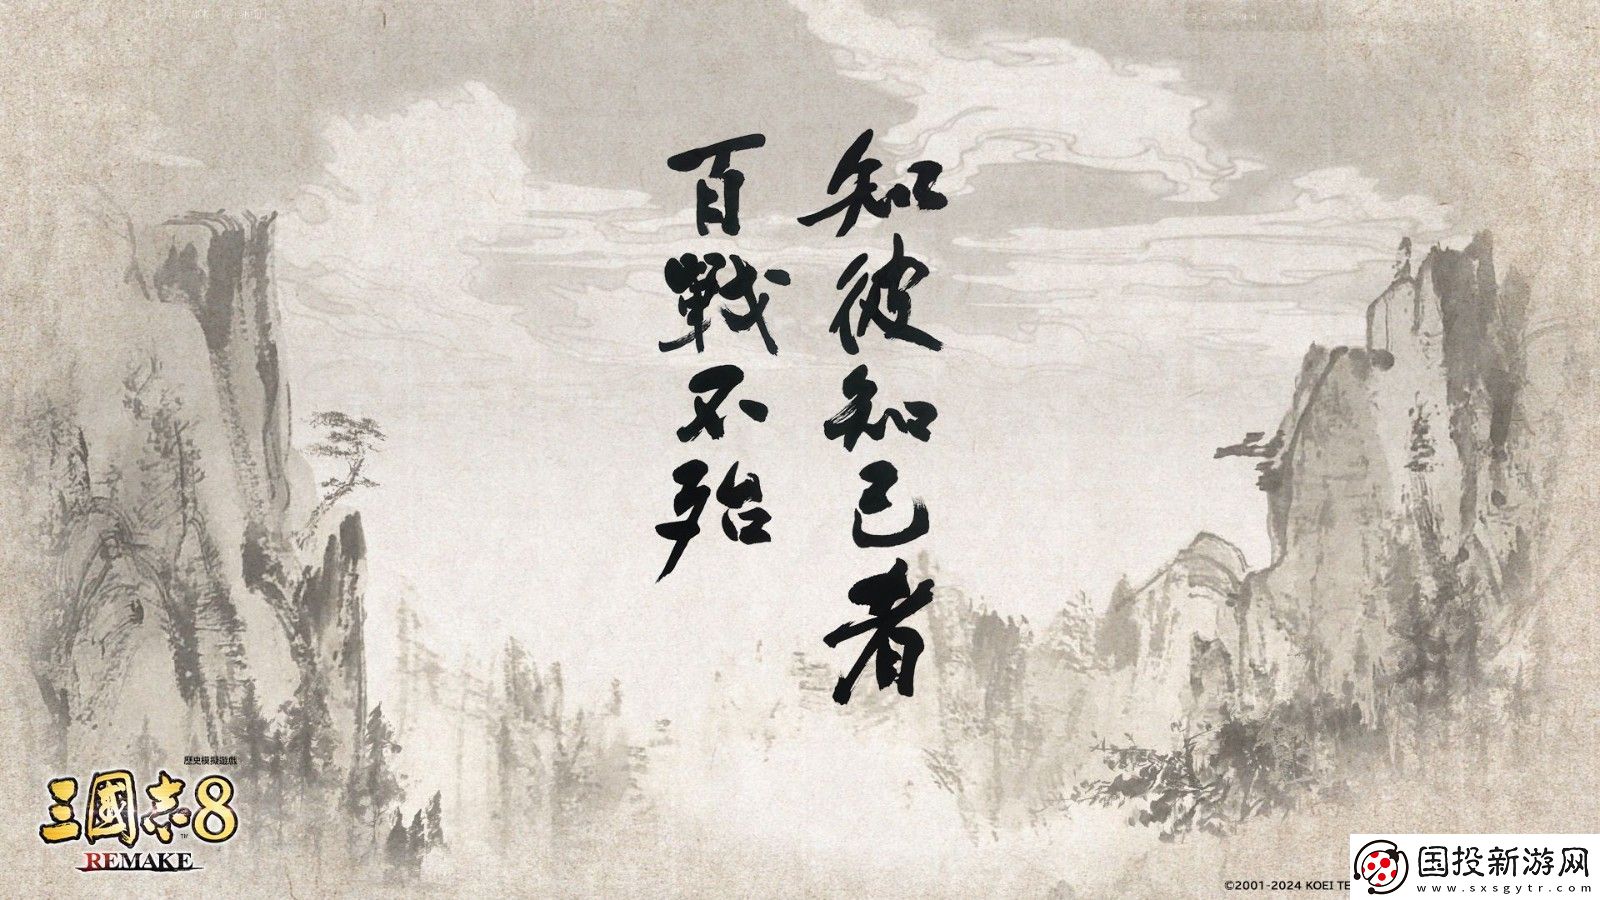 知彼知己者
百戰不殆
歷史模擬遊戲
三國志8
TM
REMAKE
©2001-2024 KOEI TE
国投新游网
www.sxsgytr.com